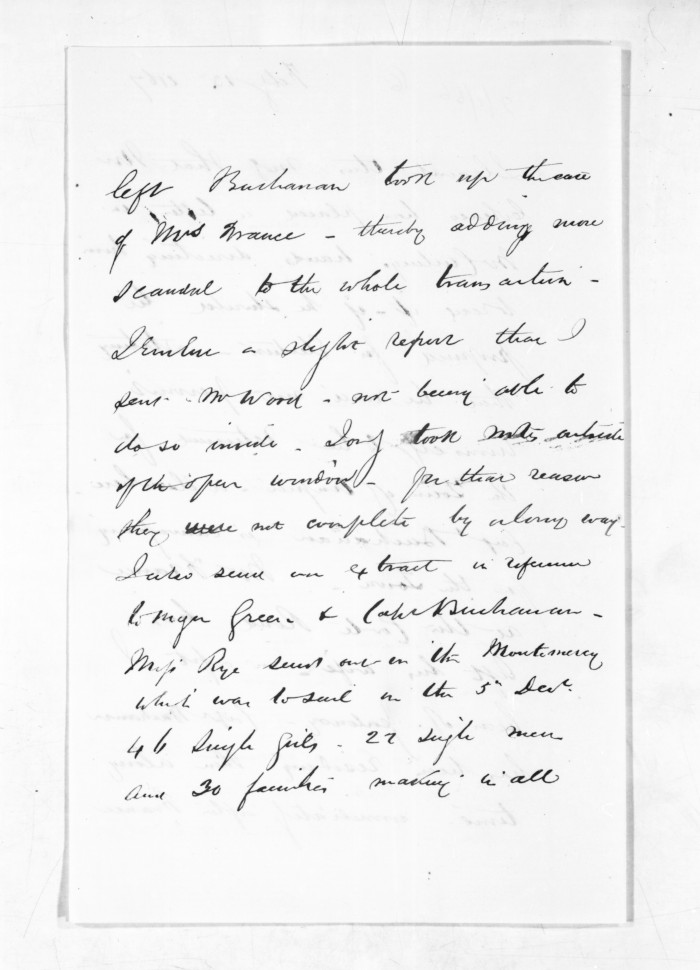 left Buchanan took up the case
of Mrs France - thereby adding more
scandal to the whole transaction -
I Enclose a slight report that I
sent Mr Wood - not being able to
do so inside. I only took notes outside
of the open window - for that reason
they were not complete by a long way.
I also send an extract in reference
to Major Green & Capt Buchanan -
Miss Rye sends out in the Montmorency
which was to sail on the 5th Decr.
46 single girls - 22 single men
and 30 families making in all